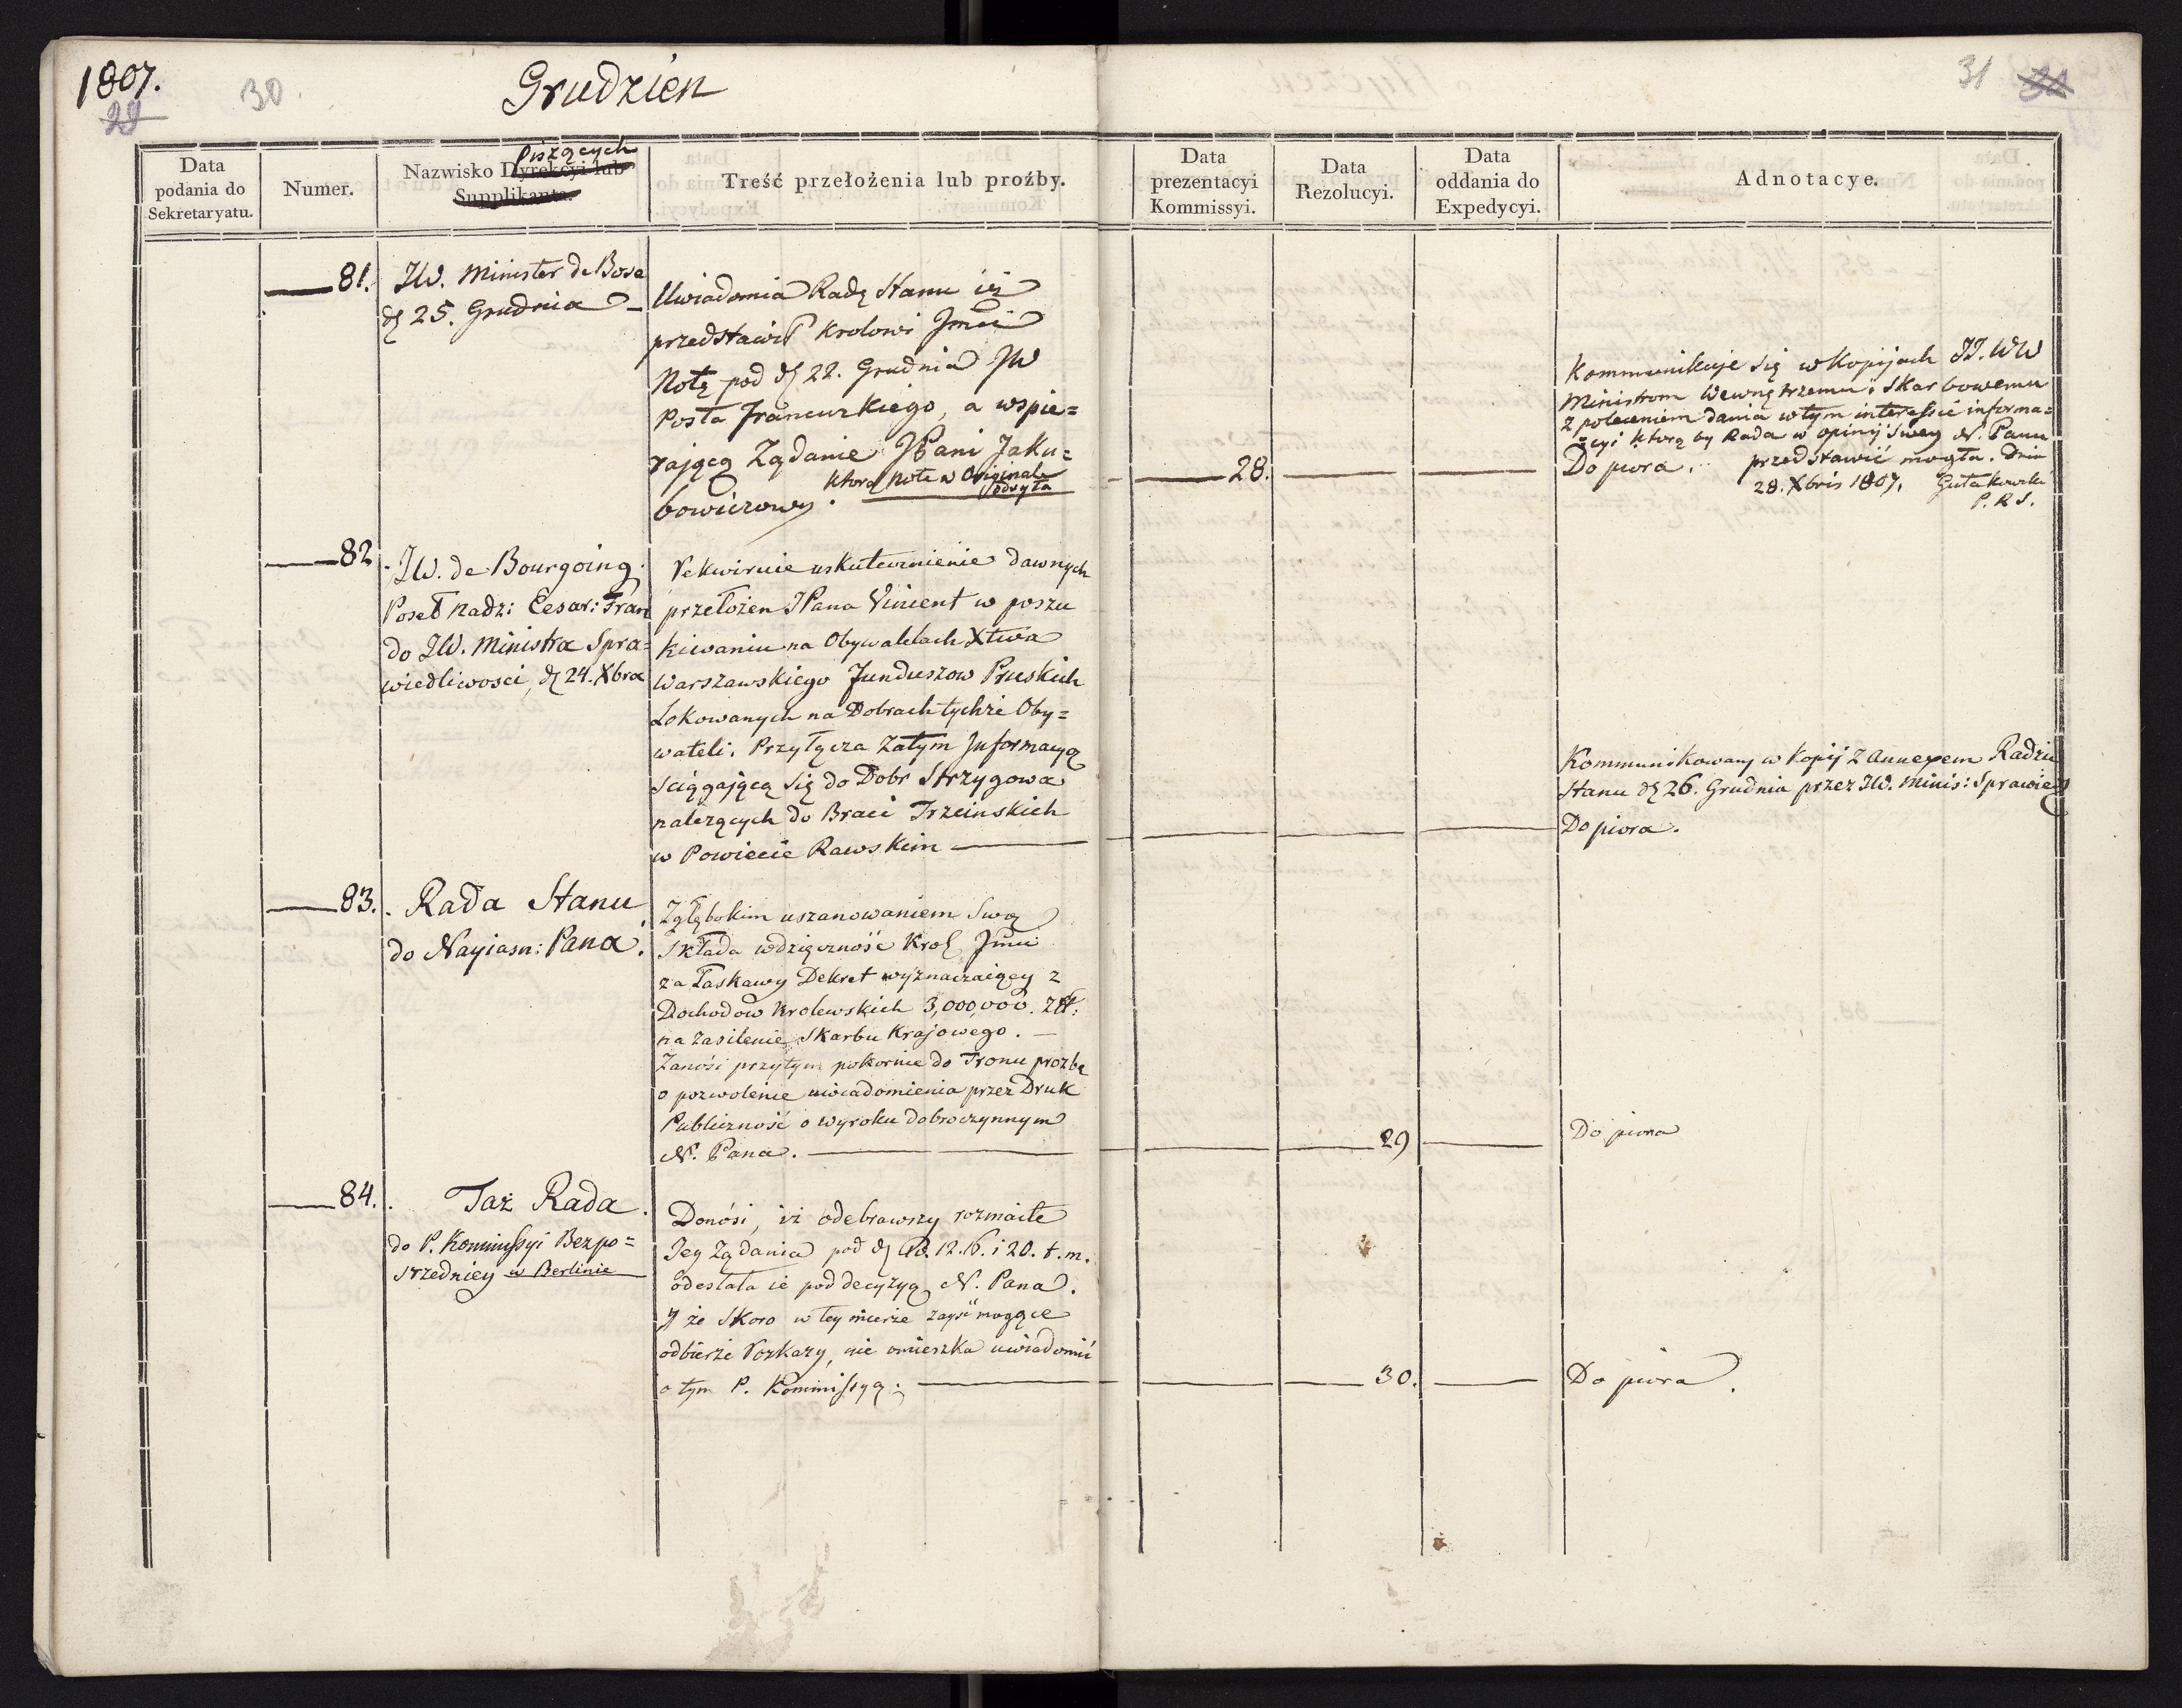 1807.
29
30.
Grudzień
31 30
Data
podania do
Sekretaryatu.
Numer.
piszących
Nazwisko Dyrekcyi lub
Supplikanta.
Treść przełożenia lub proźby.
Data
prezentacyi
Kommissyi.
Data
Rezolucyi.
Data
oddania do
Expedycyi.
Adnotacye.
81.
JW. Minister de Bose
25. Grudnia
Uwiadomia Radę Stanu iż
przedstawił Krolowi Jmci
Notę pod 22. Grudnia JW
Posła Francuzkiego, a wspie=
rającą Żądanie JPani Jaku=
bowiczowy.
ktorą Notę w Originale
odsyła
28.
Kommunikuje się w Kopijach JJ. WW
Ministrom Wewnętrzemu i Skarbowemu
z poleceniem dania w tym interessie informa=
cyi ktorą by Rada w opinij swey N. Panu
Do piora. przedstawić mogła. Dnia
28. Xbris 1807. Gutakowski
P. R. S.
82.
JW. de Bourgoing
Poseł Nadz: Cesar: Fran
do JW. Ministra Spra=
wiedliwosci, 24. Xbra
Rekwiruie uskutecznienie dawnych
przełożen JPana Vincent w poszu
kiwaniu na Obywatelach Xtwa
Warszawskiego Funduszow Pruskich
Lokowanych na Dobrach tychże Oby=
wateli. Przyłącza zatym Informacyą
sciągającą się do Dobr Strzygowa
nalezących do Braci Trzcinskich
w Powiecie Rawskim
Kommunikowany w Kopij z Annexem Radzie
Stanu 26. Grudnia przez JW. Minis: Sprawied
Do piora.
83.
Rada Stanu
do Nayiasn: Pana.
Z głębokim uszanowaniem swą
składa wdzięczność Krol Jmci
za łaskawy Dekret wyznaczaiący z
Dochodow Krolewskich 3,000,000. Złł:
na zasilenie Skarbu Krajowego.
Zanosi przytym pokornie do Tronu prozbę
o pozwolenie uwiadomienia przez Druk
Publiczność o wyroku dobroczynnym
N. Pana.
29
Do piora
84.
Taż Rada
do P. Kommissyi Bezpo=
srzedniey w Berlinie
Donosi, iż odebrawszy rozmaite
Jey Żądania pod 12. 16. i 20. t. m.
odesłała ie pod decyzyą N. Pana.
Y że skoro w tey mierze zayść mogące
odbierze Rozkazy, nie omieszka uwiadomić
o tym P. Kommissyą.
30.
Do piora.